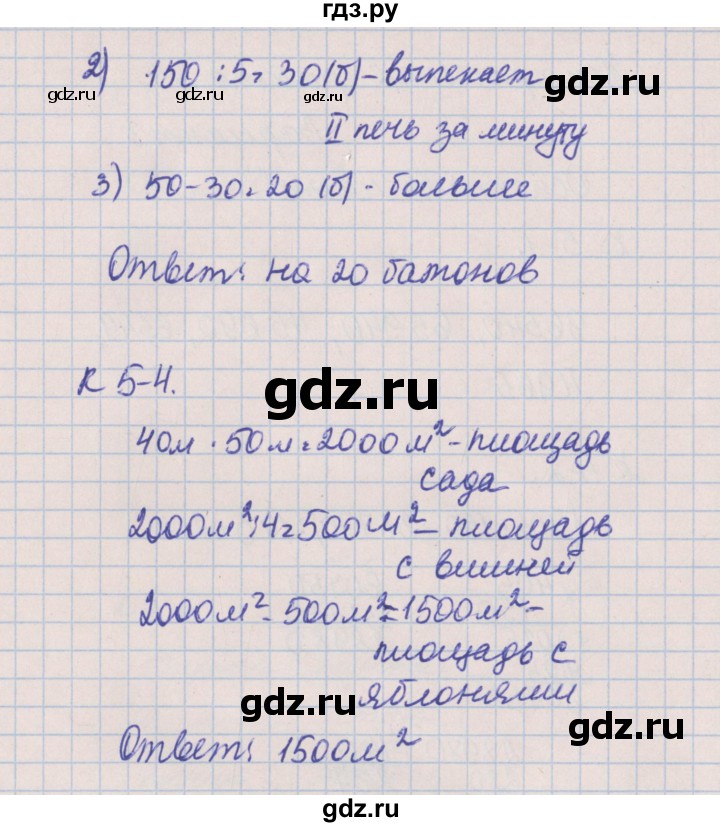 гдз.ру
2) 150 : 5 = 30 (б) - выпекает
gdz.ru gdz.ru gdz.ru gdz.ru
II печь за минуту
3) 50 - 30 = 20 (б) - больше
Ответ: на 20 батонов
К 5-4.
gdz.ru
40м · 50м = 2000м² - площадь
сада
2000м² : 4 = 500м² - площадь
с вишней
2000м² - 500м² = 1500м² -
площадь с
gdz.ru
яблонями
Ответ: 1500м²
gdz.ru
gdz.ru